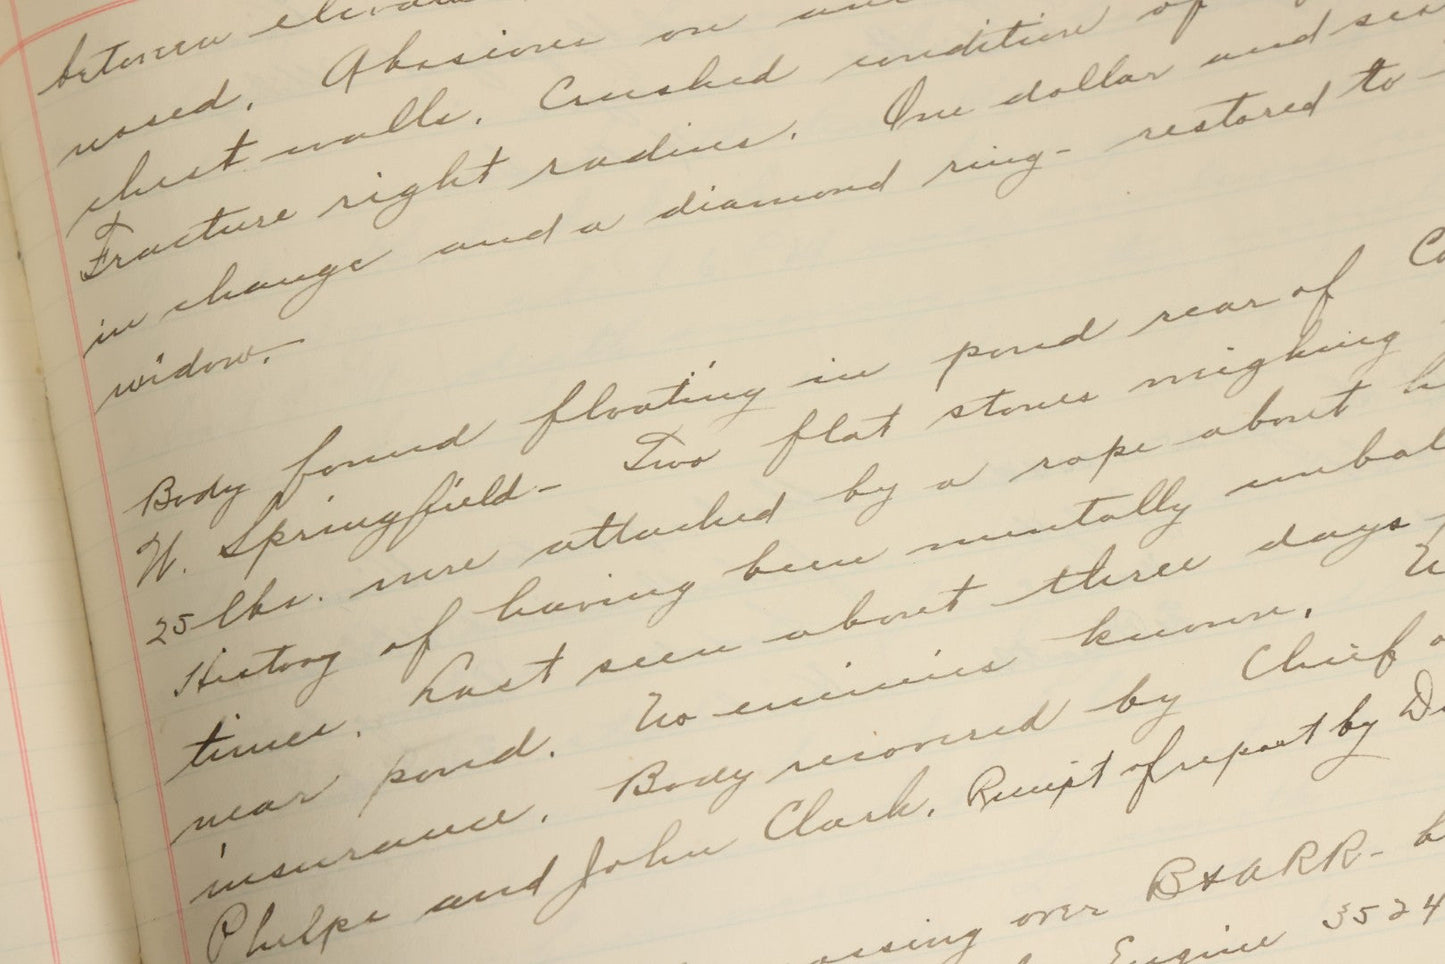 between
used. Abrasions on
chest walls. Crushed condition of
Fracture right radius. One dollar and
in change and a diamond ring - restored to
widow.
Body found floating in pond rear of
W. Springfield - Two flat stones weighing
25 lbs. were attached by a rope about
History of having been mentally
times. Last seen about three days
near pond. No enemies known.
insurance. Body recovered by Chief
Phelps and John Clark. Receipt of report by
crossing over B & A RR -
Engine 3524